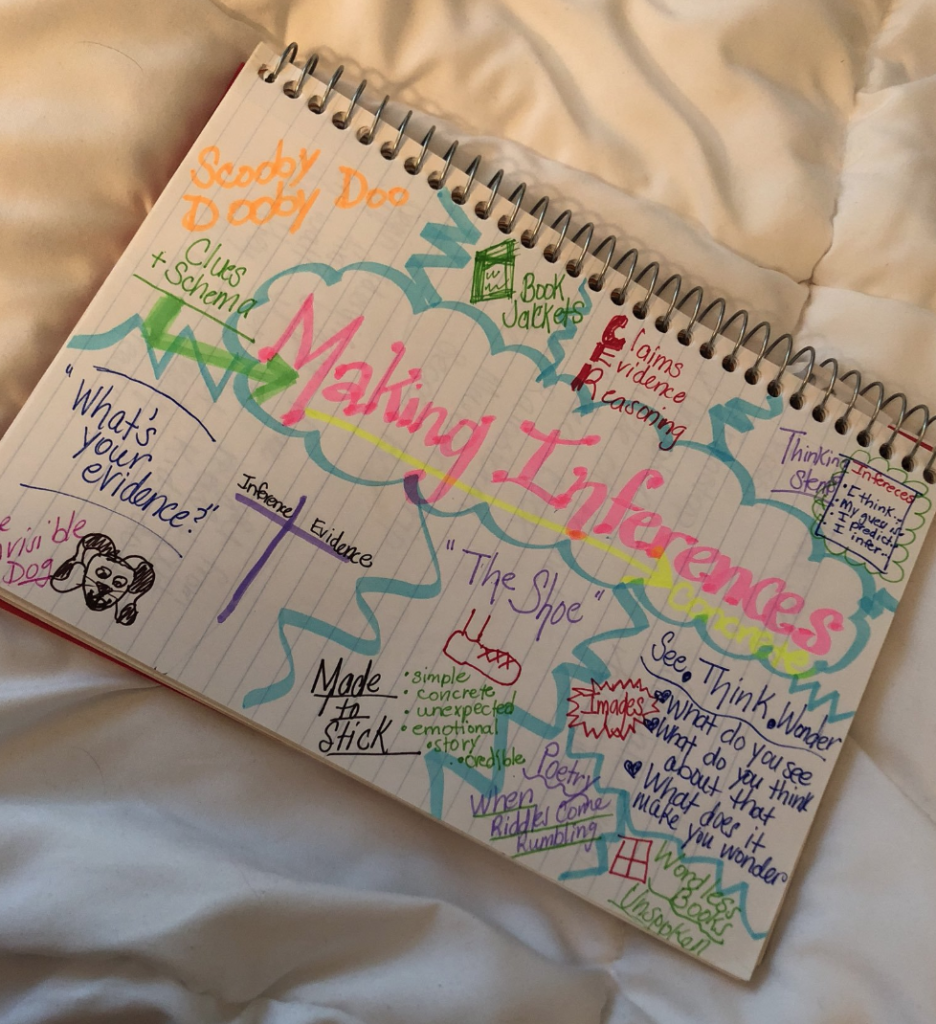 Scooby
Dooby Doo
Clues
+ Schema
Book
Jackets
Claims
Evidence
Reasoning
Making Inferences
Concrete
Thinking
Stems
Inferences
• I think...
• My guess is
• I predict
• I infer...
"What's
your
evidence?"
Inference
Evidence
Dog
"The Shoe"
Made
to
Stick
• simple
• concrete
• unexpected
• emotional
• story
• credible
Images
See. Think. Wonder
What do you see
What do you think
about that
What does it
make you wonder
Poetry
When
Riddles Come
Rumbling
Wordless
Books
Unspoken